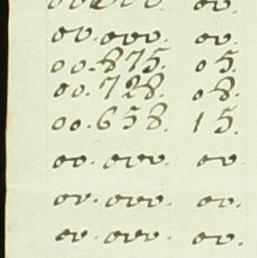 00.000. 00.
00.000. 00.
00.875. 05.
00.728. 08.
00.658. 15.
00.000. 00.
00.000. 00.
00.000. 00.